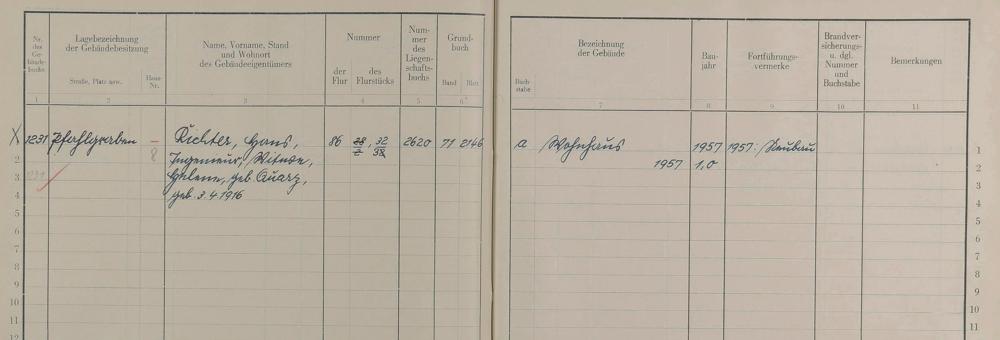 Nr. des Ge- bäude- buchs
Lagebezeichnung der Gebäudebesitzung
Straße, Platz usw.
Haus Nr.
Name, Vorname, Stand und Wohnort des Gebäudeeigentümers
Nummer
der Flur
des Flurstücks
Num- mer des Liegen- schafts- buchs
Grund- buch
Band
Blatt
1 2 3 4 5 6
X 1231 Pfahlgraben – Richter, Hans, 86 32 2620 71 2146
Ingenieur, Witwe,
geb. Quarz,
geb. 3.4.1916
2
3
4
5
6
7
8
9
10
11
12
Bezeichnung der Gebäude
Buch- stabe
Bau- jahr
Fortführungs- vermerke
Brandver- sicherungs- u. dgl. Nummer und Buchstabe
Bemerkungen
7 8 9 10 11
a Wohnhaus 1957 1957: Neubau 1
1957 1,0 2
3
4
5
6
7
8
9
10
11